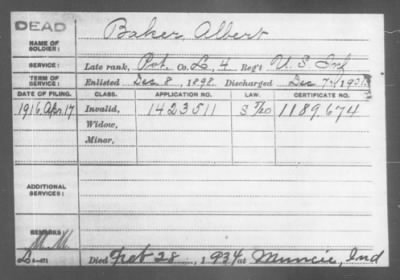 DEAD
Baker Albert
NAME OF SOLDIER:
SERVICE: Late rank, Pvt. Co. L, 4 Reg't U.S. Inf
TERM OF SERVICE: Enlisted Dec 8, 1898. Discharged Dec 7, 1901
DATE OF FILING. CLASS. APPLICATION NO. LAW. CERTIFICATE NO.
1916, Apr. 17 Invalid, 1423511 1189.674
Widow,
Minor,
ADDITIONAL SERVICES:
REMARKS:
Died Feb 28, 1934 at Muncie, Ind